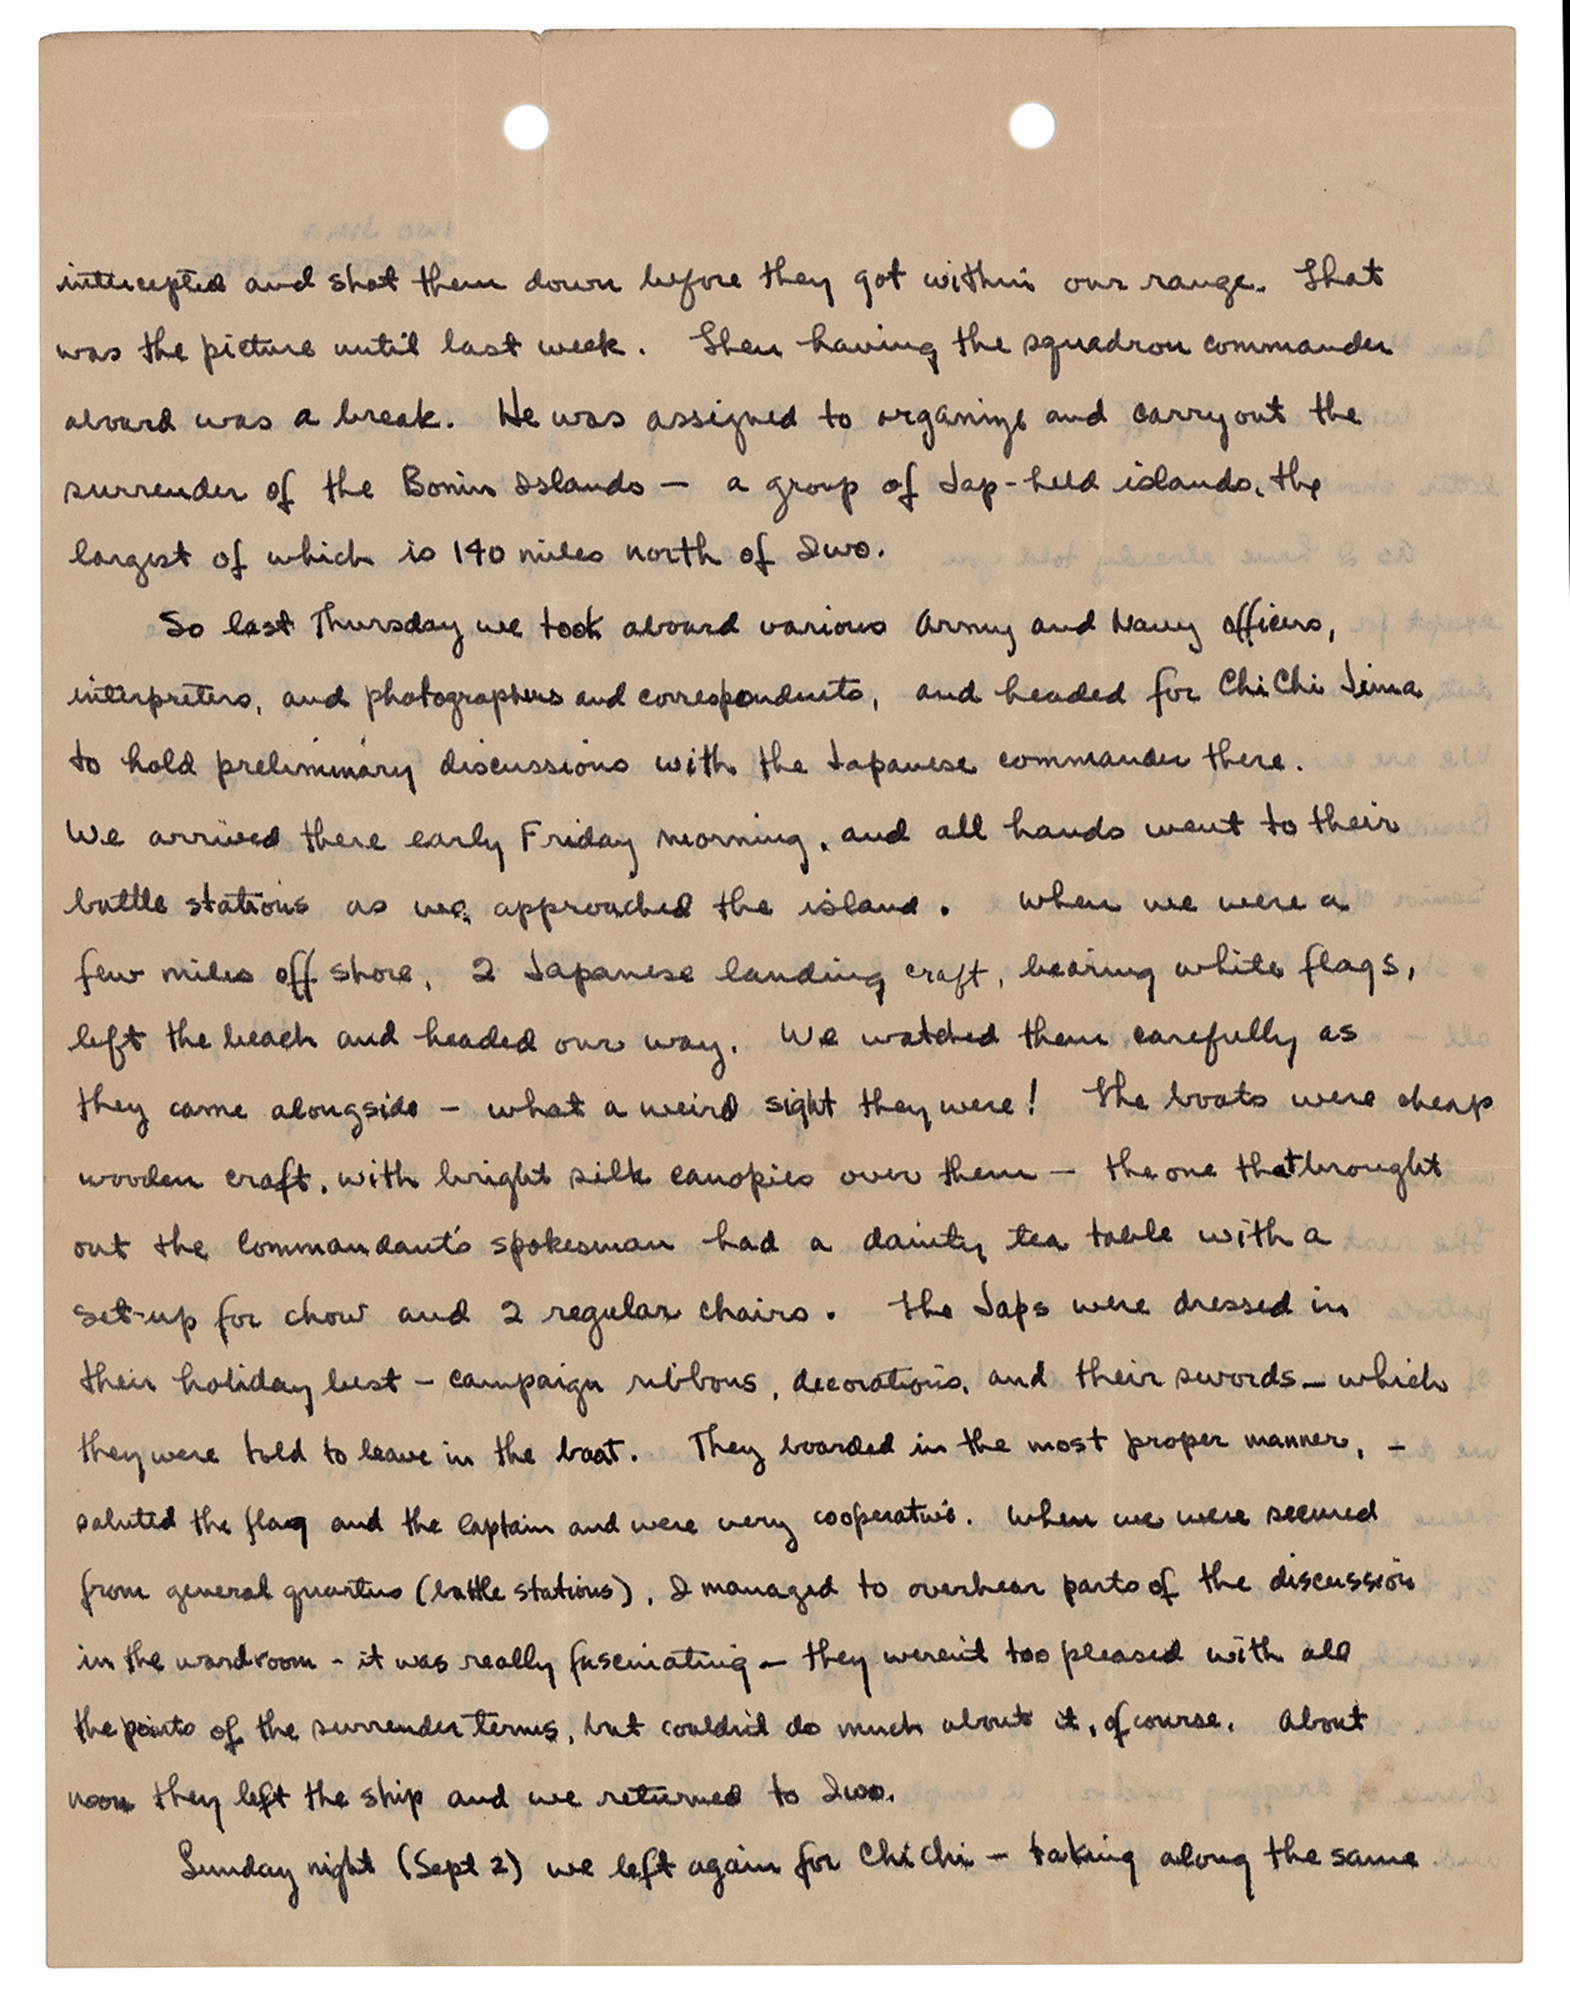 intercepted and shot them down before they got within our range. That
was the picture until last week. Then having the squadron commander
aboard was a break. He was assigned to organize and carry out the
surrender of the Bonin Islands — a group of Jap-held islands, the
largest of which is 140 miles north of Iwo.
So last Thursday we took aboard various Army and Navy officers,
interpreters, and photographers and correspondents, and headed for ChiChi Jima
to hold preliminary discussions with the Japanese commander there.
We arrived there early Friday morning, and all hands went to their
battle stations as we approached the island. When we were a
few miles off shore, 2 Japanese landing craft, bearing white flags,
left the beach and headed our way. We watched them carefully as
they came alongside — what a weird sight they were! The boats were cheap
wooden craft, with bright silk canopies over them — the one that brought
out the Commandant's spokesman had a dainty tea table with a
set-up for chow and 2 regular chairs. The Japs were dressed in
their holiday best — campaign ribbons, decorations, and their swords — which
they were told to leave in the boat. They boarded in the most proper manner, —
saluted the flag and the Captain and were very cooperative. When we were secured
from general quarters (battle stations), I managed to overhear parts of the discussion
in the wardroom - it was really fascinating — they weren't too pleased with all
the points of the surrender terms, but couldn't do much about it, of course. About
noon they left the ship and we returned to Iwo.
Sunday night (Sept 2) we left again for ChiChi — taking along the same